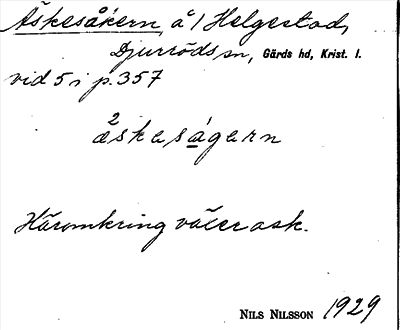 Äskesåkern, å 1 Helgestad,
Djurröds sn, Gärds hd, Krist. l.
vid 5 i p. 357
äskeságarn
Häromkring växer ask.
NILS NILSSON 1929